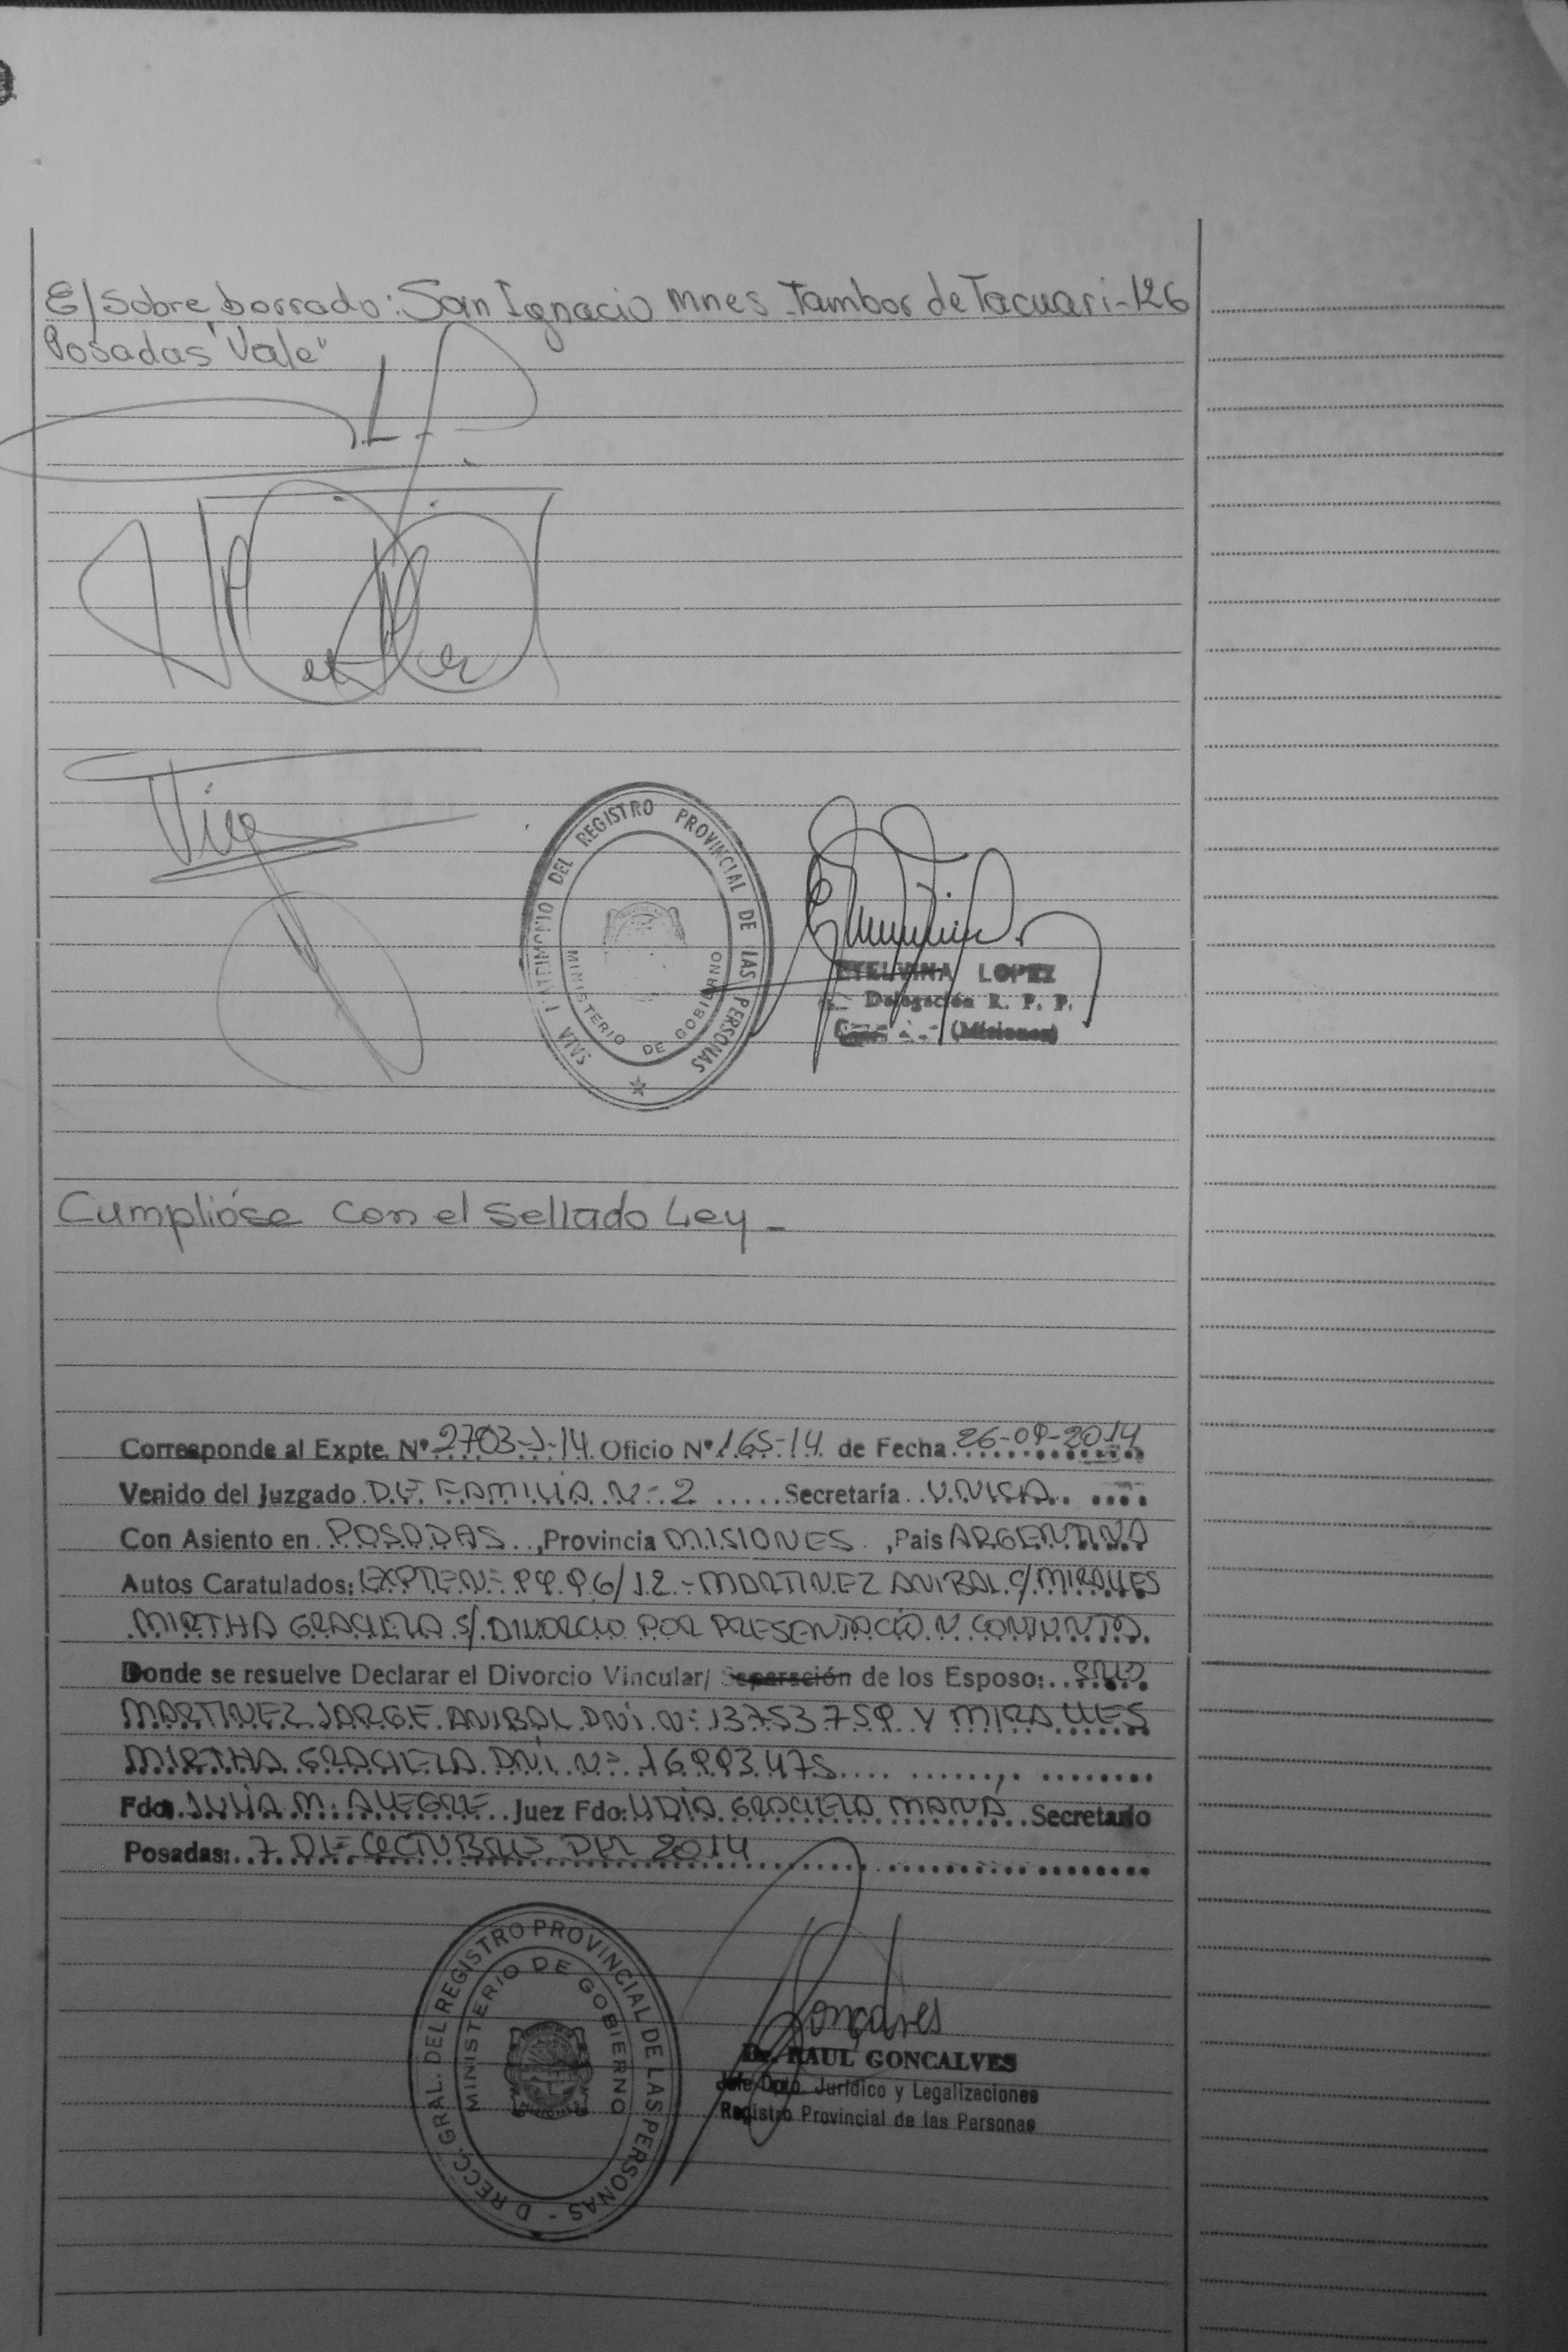 E/sobre borrado: San Ignacio Mnes. Tambor de Tacuari-126
Posadas "Vale"
DEL REGISTRO PROVINCIAL DE LAS PERSONAS
MINISTERIO DE GOBIERNO
ETELVINA LOPEZ
Delegación R. P. P.
(Misiones)
Cumplióse con el sellado Ley-
Corresponde al Expte. Nº 2703-J-14. Oficio Nº 165-14 de Fecha 26-09-2014
Venido del Juzgado DE FAMILIA Nº 2 Secretaría UNICA
Con Asiento en POSADAS, Provincia MISIONES, Pais ARGENTINA
Autos Caratulados: EXPTE Nº 9996/12 - MARTINEZ ANIBAL C/ MIRALLES
MIRTHA GRACIELA S/ DIVORCIO POR PRESENTACION CONJUNTA.
Donde se resuelve Declarar el Divorcio Vincular/ Separación de los Esposo:
MARTINEZ JORGE ANIBAL DNI. Nº 13753759 Y MIRALLES
MIRTHA GRACIELA DNI. Nº 16993475
Fdo. JULIA M. ALEGRE Juez Fdo: LIDIA GRACIELA Secretario
Posadas: 7 DE OCTUBRE DEL 2014
DIRECC. GRAL. DEL REGISTRO PROVINCIAL DE LAS PERSONAS -
MINISTERIO DE GOBIERNO
Goncalves
Dr. RAUL GONCALVES
Jefe Dpto. Jurídico y Legalizaciones
Registro Provincial de las Personas